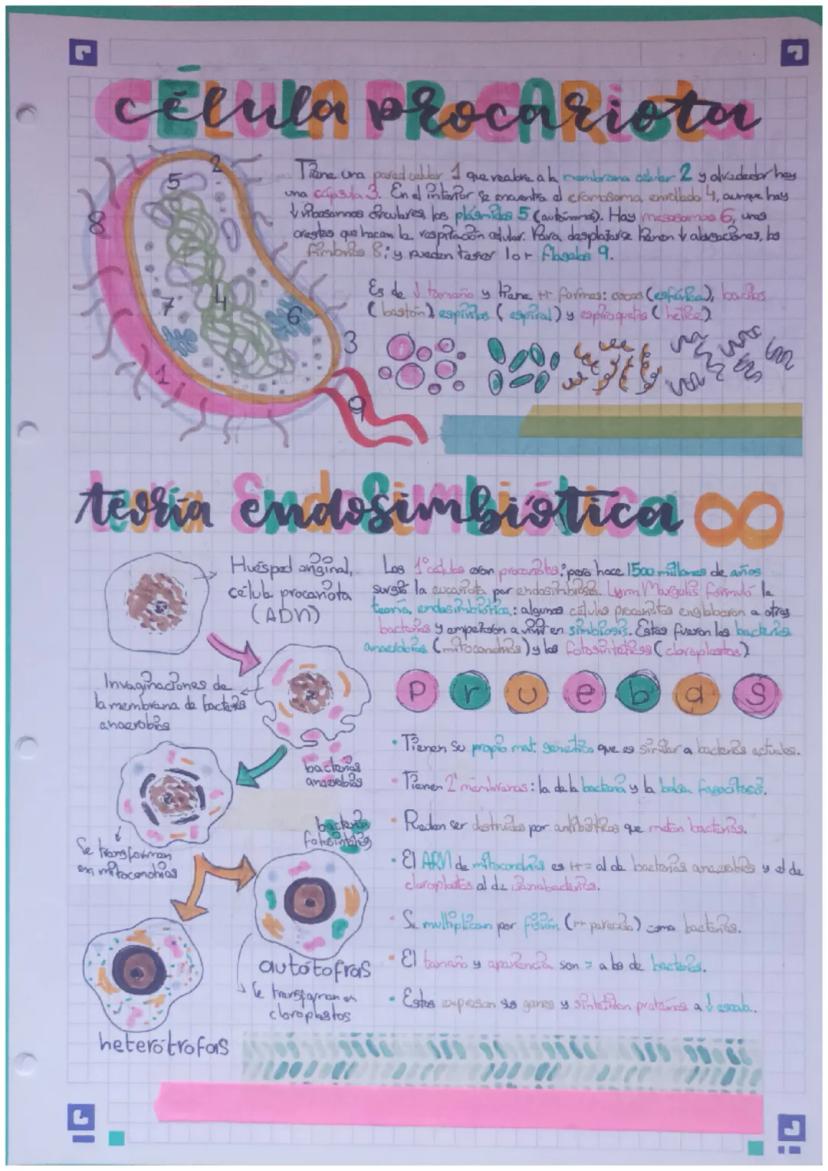 CÉLULA PROCARIOTA
célula procariota
Tiene una pared celular 1 que recubre a la membrana celular 2 y alrededor hay
una cápsula 3. En el interior se encuentra el cromosoma enrollado 4, aunque hay
↓ ribosomas circulares los plásmidos 5 (autónomos). Hay mesosomas 6, unas
crestas que hacen la respiración celular. Para desplazarse tienen ↓ alteraciones, las
fimbrias 8; y pueden tener 1 o + flagelos 9.
Es de ↓ tamaño y tiene ++ formas: cocos (esférica), bacilos
(bastón) espirilos (espiral) y espiroquetas (hélice)
2
5
8
7
4
6
3
1
9
teoría endosimbiótica
Huésped original,
célula procariota
(ADN)
Las 1º células eran procariotas; pero hace 1500 millones de años
surgió la eucariota por endosimbiosis. Lynn Margulis formuló la
teoría endosimbiótica: algunas células procariotas englobaron a otras
bacterias y empezaron a vivir en simbiosis. Estas fueron las bacterias
anaerobias (mitocondrias) y las fotosintéticas (cloroplastos)
Invaginaciones de
la membrana de bacterias
anaerobias
pruebas
bacterias
anaerobias
• Tienen su propio mat. genético que es similar a bacterias actuales.
• Tienen 2 membranas: la de la bacteria y la bolsa fagocítica.
bacterias
fotosintéticas
• Pueden ser destruidos por antibióticos que matan bacterias.
Se transforman
en mitocondrias
• El ARN de mitocondrias es ++ = al de bacterias anaerobias y el de
cloroplastos al de cianobacterias.
• Se multiplican por fisión (++ parecido) como bacterias.
autótofras
• El tamaño y apariencia son = a las de bacterias.
Se transforman en
cloroplastos
• Estos expresan sus genes y sintetizan proteínas a ↓ escala.
heterótrofas